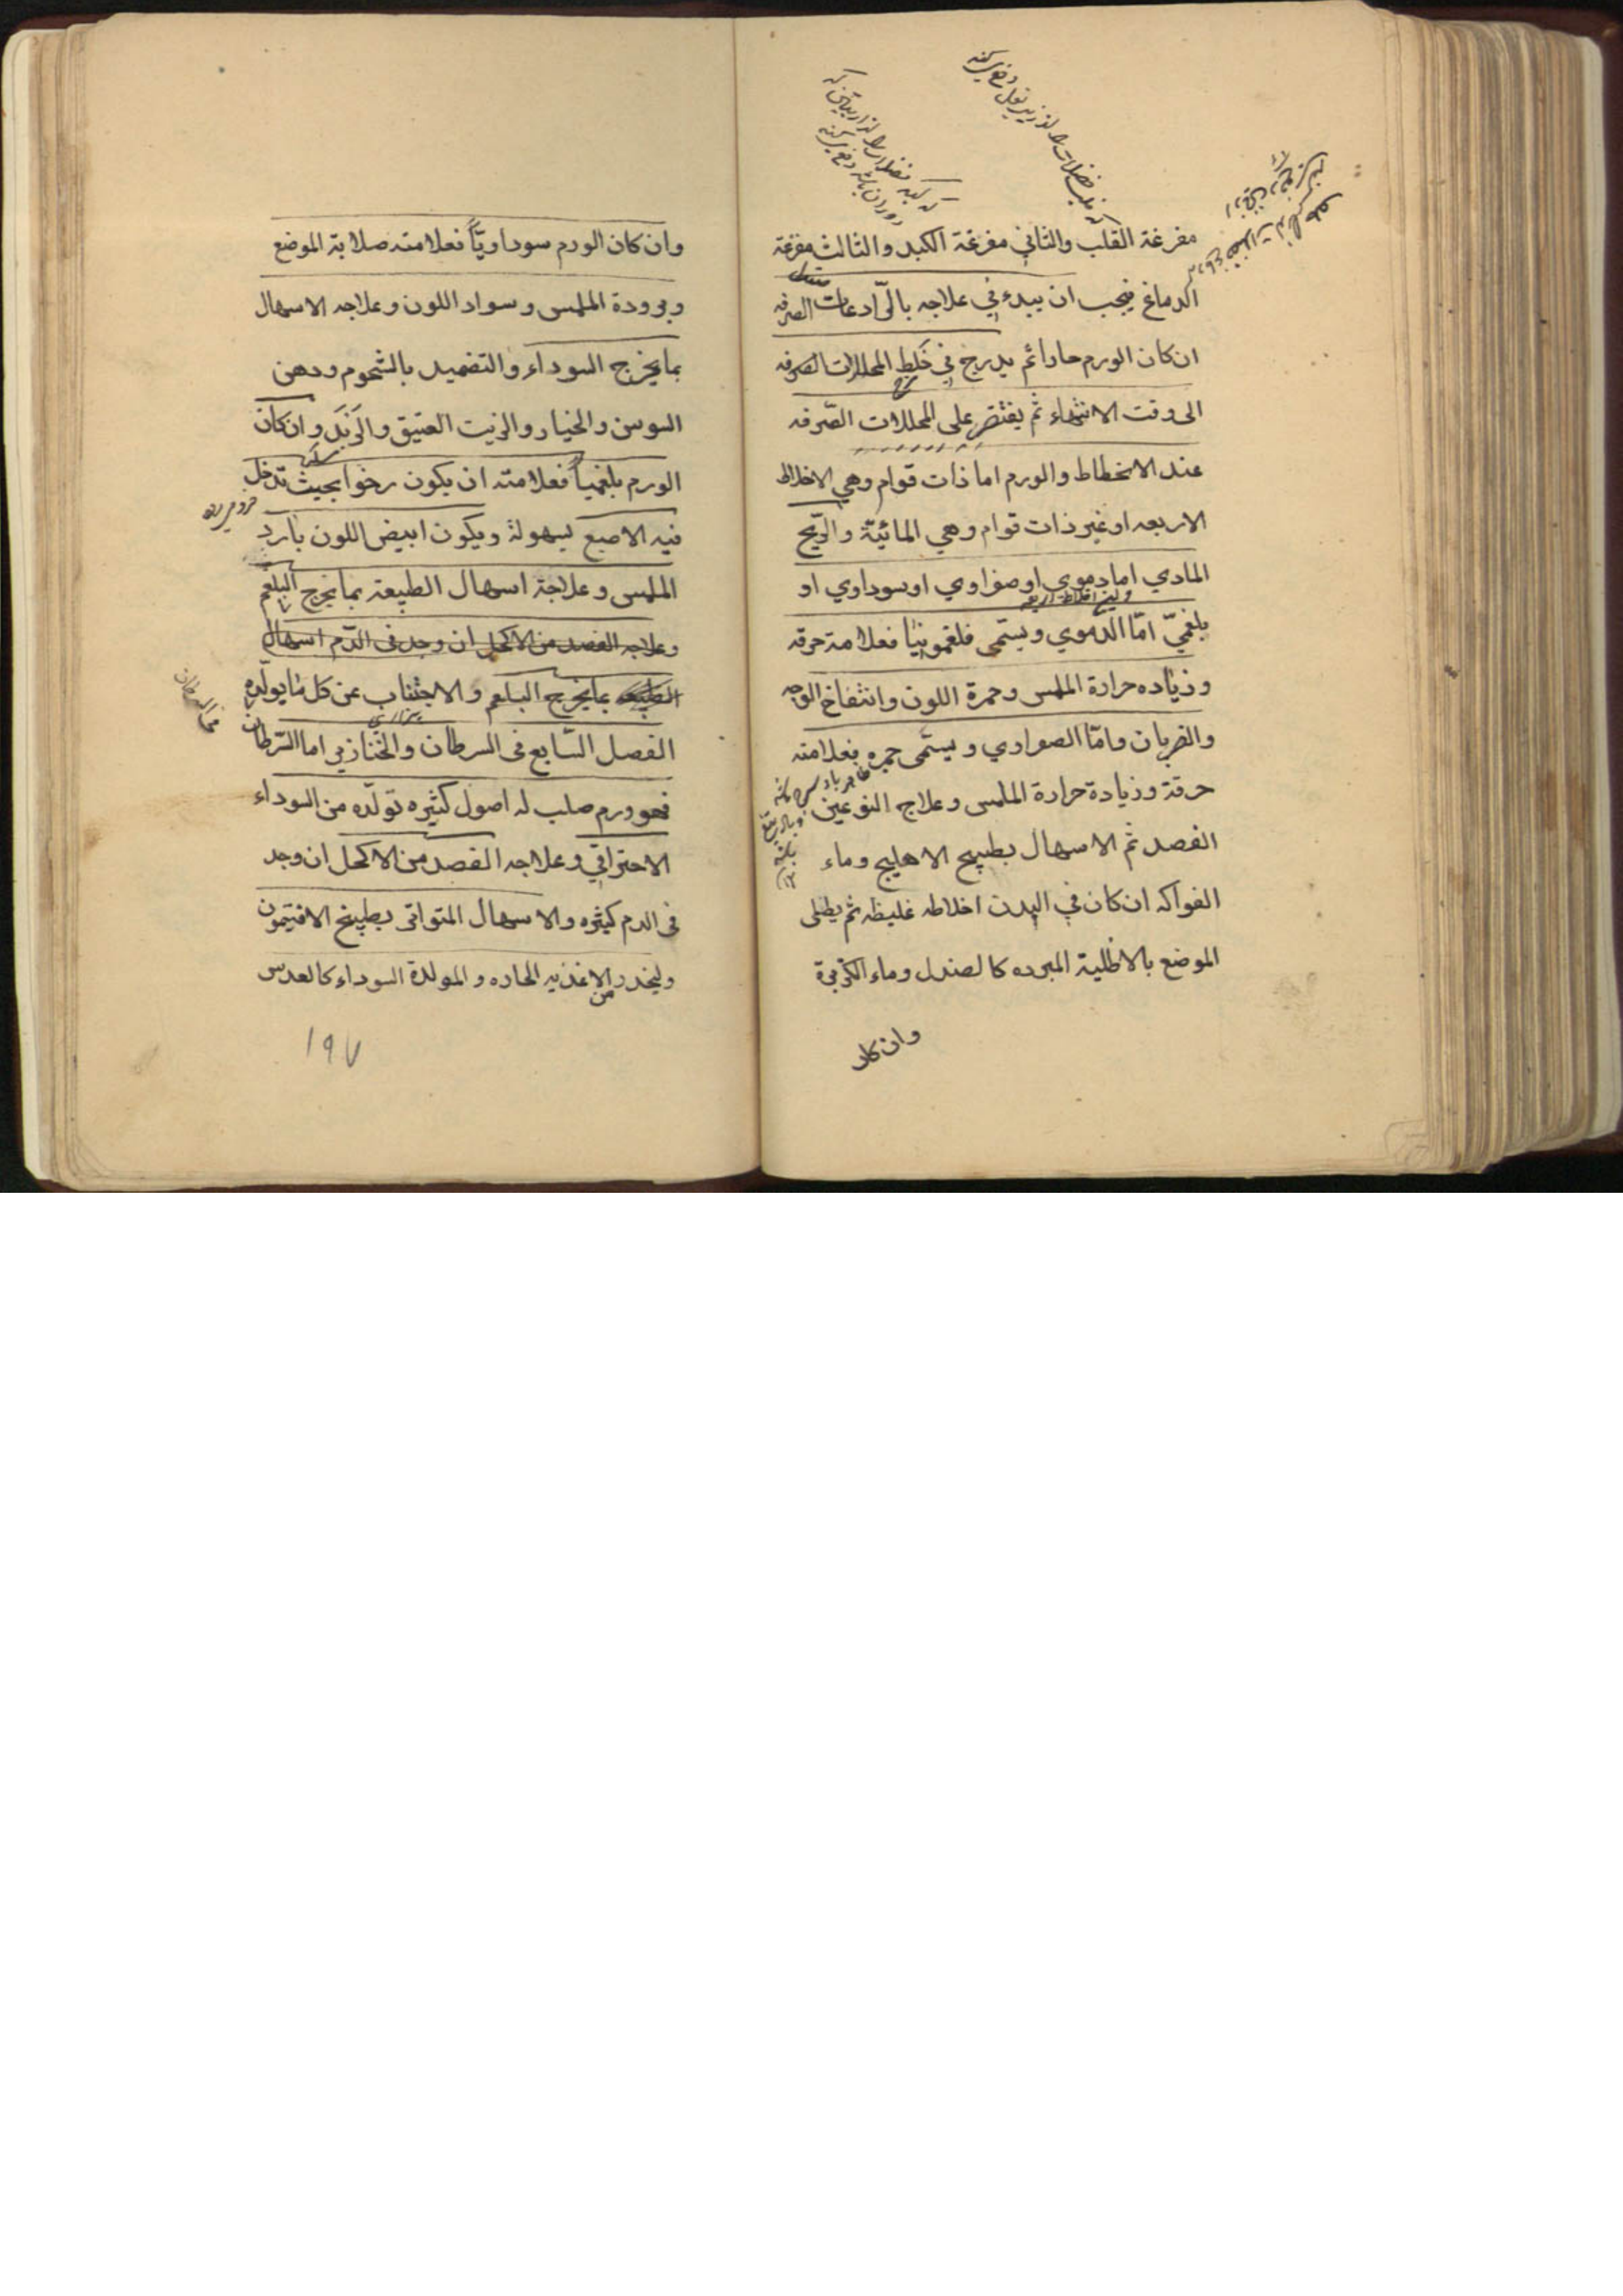 مفرغة القلب والثاني مفرغة الكبد والثالث مفرغة
الدماغ فيجب ان يبدء في علاجه بالرّادعات الصرفه
ان كان الورم حادا ثم يدرج في خلط المحللات الصرفه
الى وقت الانتهاء ثم يقتصر على المحللات الصّرفه
عند الانحطاط والورم اما ذات قوام وهي الاخلاط
الاربعه او غير ذات قوام وهي المائيّة والرّيح
المادي اما دموي او صفراوي او سوداوي او
بلغميّ امّا الدّموي ويسمّى فلغمونيا فعلامة حرقه
وزياده حرارة الملمس وحمرة اللون وانتفاخ الوجه
والضربان وامّا الصفراوي ويسمّى حمره فعلامته
حرقة وزيادة حرارة الملمس وعلاج النوعين
الفصد ثم الاسهال بطبيخ الاهليج وماء
الفواكه ان كان في البدن اخلاطه غليظه ثم يطلى
الموضع بالاطلية المبرده كالصندل وماء الكزبرة
وان كان
وان كان الورم سوداويّاً فعلامته صلابة الموضع
وبرودة الملمس وسواد اللون وعلاجه الاسهال
بما يخرج السوداء والتضميد بالشحوم ودهن
السوسن والخيار والزيت العتيق والزبد وان كان
الورم بلغمياً فعلامته ان يكون رخوا بحيث تدخل
فيه الاصبع بسهولة ويكون ابيض اللون بارد
الملمس وعلاجة اسهال الطبيعة بما يخرج البلغم
وعلاجه الفصد من الاكحل ان وجد فى الدّم اسهال
الطبيعه بما يخرج البلغم والاجتناب عن كل ما يولّده
الفصل السّابع فى السرطان والخنازير اما السّرطان
فهو ورم صلب له اصول كثيره تولّده من السوداء
الاحتراقي وعلاجه الفصد من الاكحل ان وجد
فى الدم كثره والاسهال المتواتر بطبيخ الافتيمون
وليحذر من الاغذيه الحاره والمولدة السوداء كالعدس
١٩٧